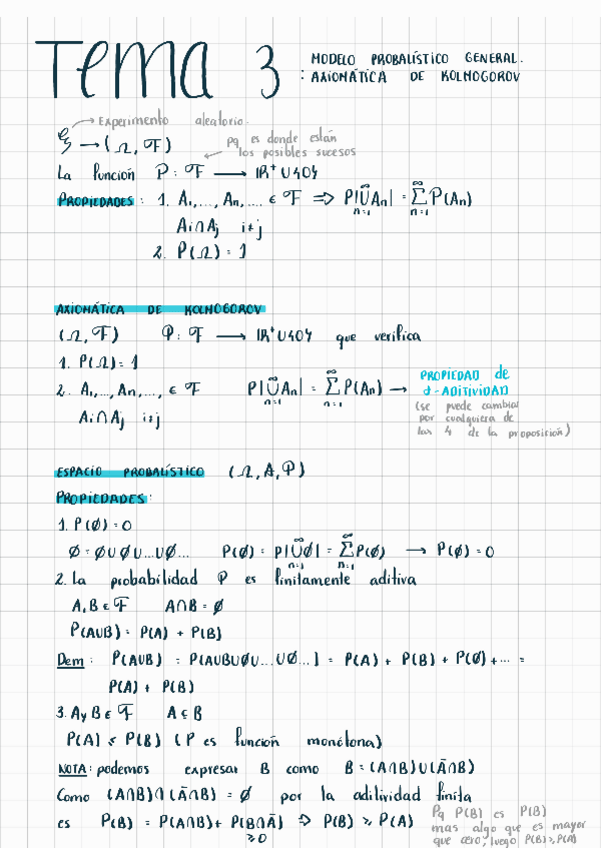 Tema 3 : MODELO PROBALÍSTICO GENERAL.
AXIOMÁTICA DE KOLMOGOROV
→ Experimento aleatorio.
ξ → (Ω, F)
Pq es donde están
los posibles sucesos
La función P : F → IR⁺ U {0}
PROPIEDADES : 1. A₁,..., Aₙ,.... ∈ F ⇒ P[∪Aₙ] = ΣP(Aₙ)
n=1 ∞ n=1 ∞
Ai∩Aj i≠j
2. P(Ω) = 1
AXIOMÁTICA DE KOLMOGOROV
(Ω, F) P : F → IR⁺ U {0} que verifica
1. P(Ω) = 1
2. A₁,..., Aₙ,..., ∈ F P[∪Aₙ] = ΣP(Aₙ) →
n=1 ∞ n=1 ∞
Ai∩Aj i≠j
PROPIEDAD de
σ-ADITIVIDAD
(se puede cambiar
por cualquiera de
las 4 de la proposición)
ESPACIO PROBALÍSTICO (Ω, A, P)
PROPIEDADES:
1. P(Ø) = 0
Ø = Ø U Ø U...U Ø... P(Ø) = P[∪Ø] = ΣP(Ø) → P(Ø) = 0
n=1 ∞ n=1 ∞
2. La probabilidad P es finitamente aditiva
A, B ∈ F A∩B = Ø
P(AUB) = P(A) + P(B)
Dem : P(AUB) = P[AUBUØU...UØ...] = P(A) + P(B) + P(Ø) +... =
P(A) + P(B)
3. A y B ∈ F A ⊂ B
P(A) ≤ P(B) (P es función monótona)
NOTA: podemos expresar B como B = (A∩B)U(Ā∩B)
Como (A∩B)∩(Ā∩B) = Ø por la aditividad finita
es P(B) = P(A∩B) + P(B∩Ā) ⇒ P(B) ≥ P(A)
≥0
Pq P(B) es P(B)
mas algo que es mayor
que cero, luego P(B)≥P(A)